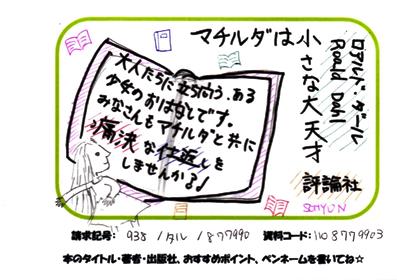 マチルダは小
さな大天才
ロアルド・ダール
Roald Dahl
評論社
SOHYUN
大人たちに立ち向う、ある
少女のおはなしです。
みなさんもマチルダと共に
痛決な仕返しを
しませんかる♪
請求記号: 938 /タル /877990 資料コード: 1108779903
本のタイトル・著者・出版社、おすすめポイント、ペンネームを書いてね☆